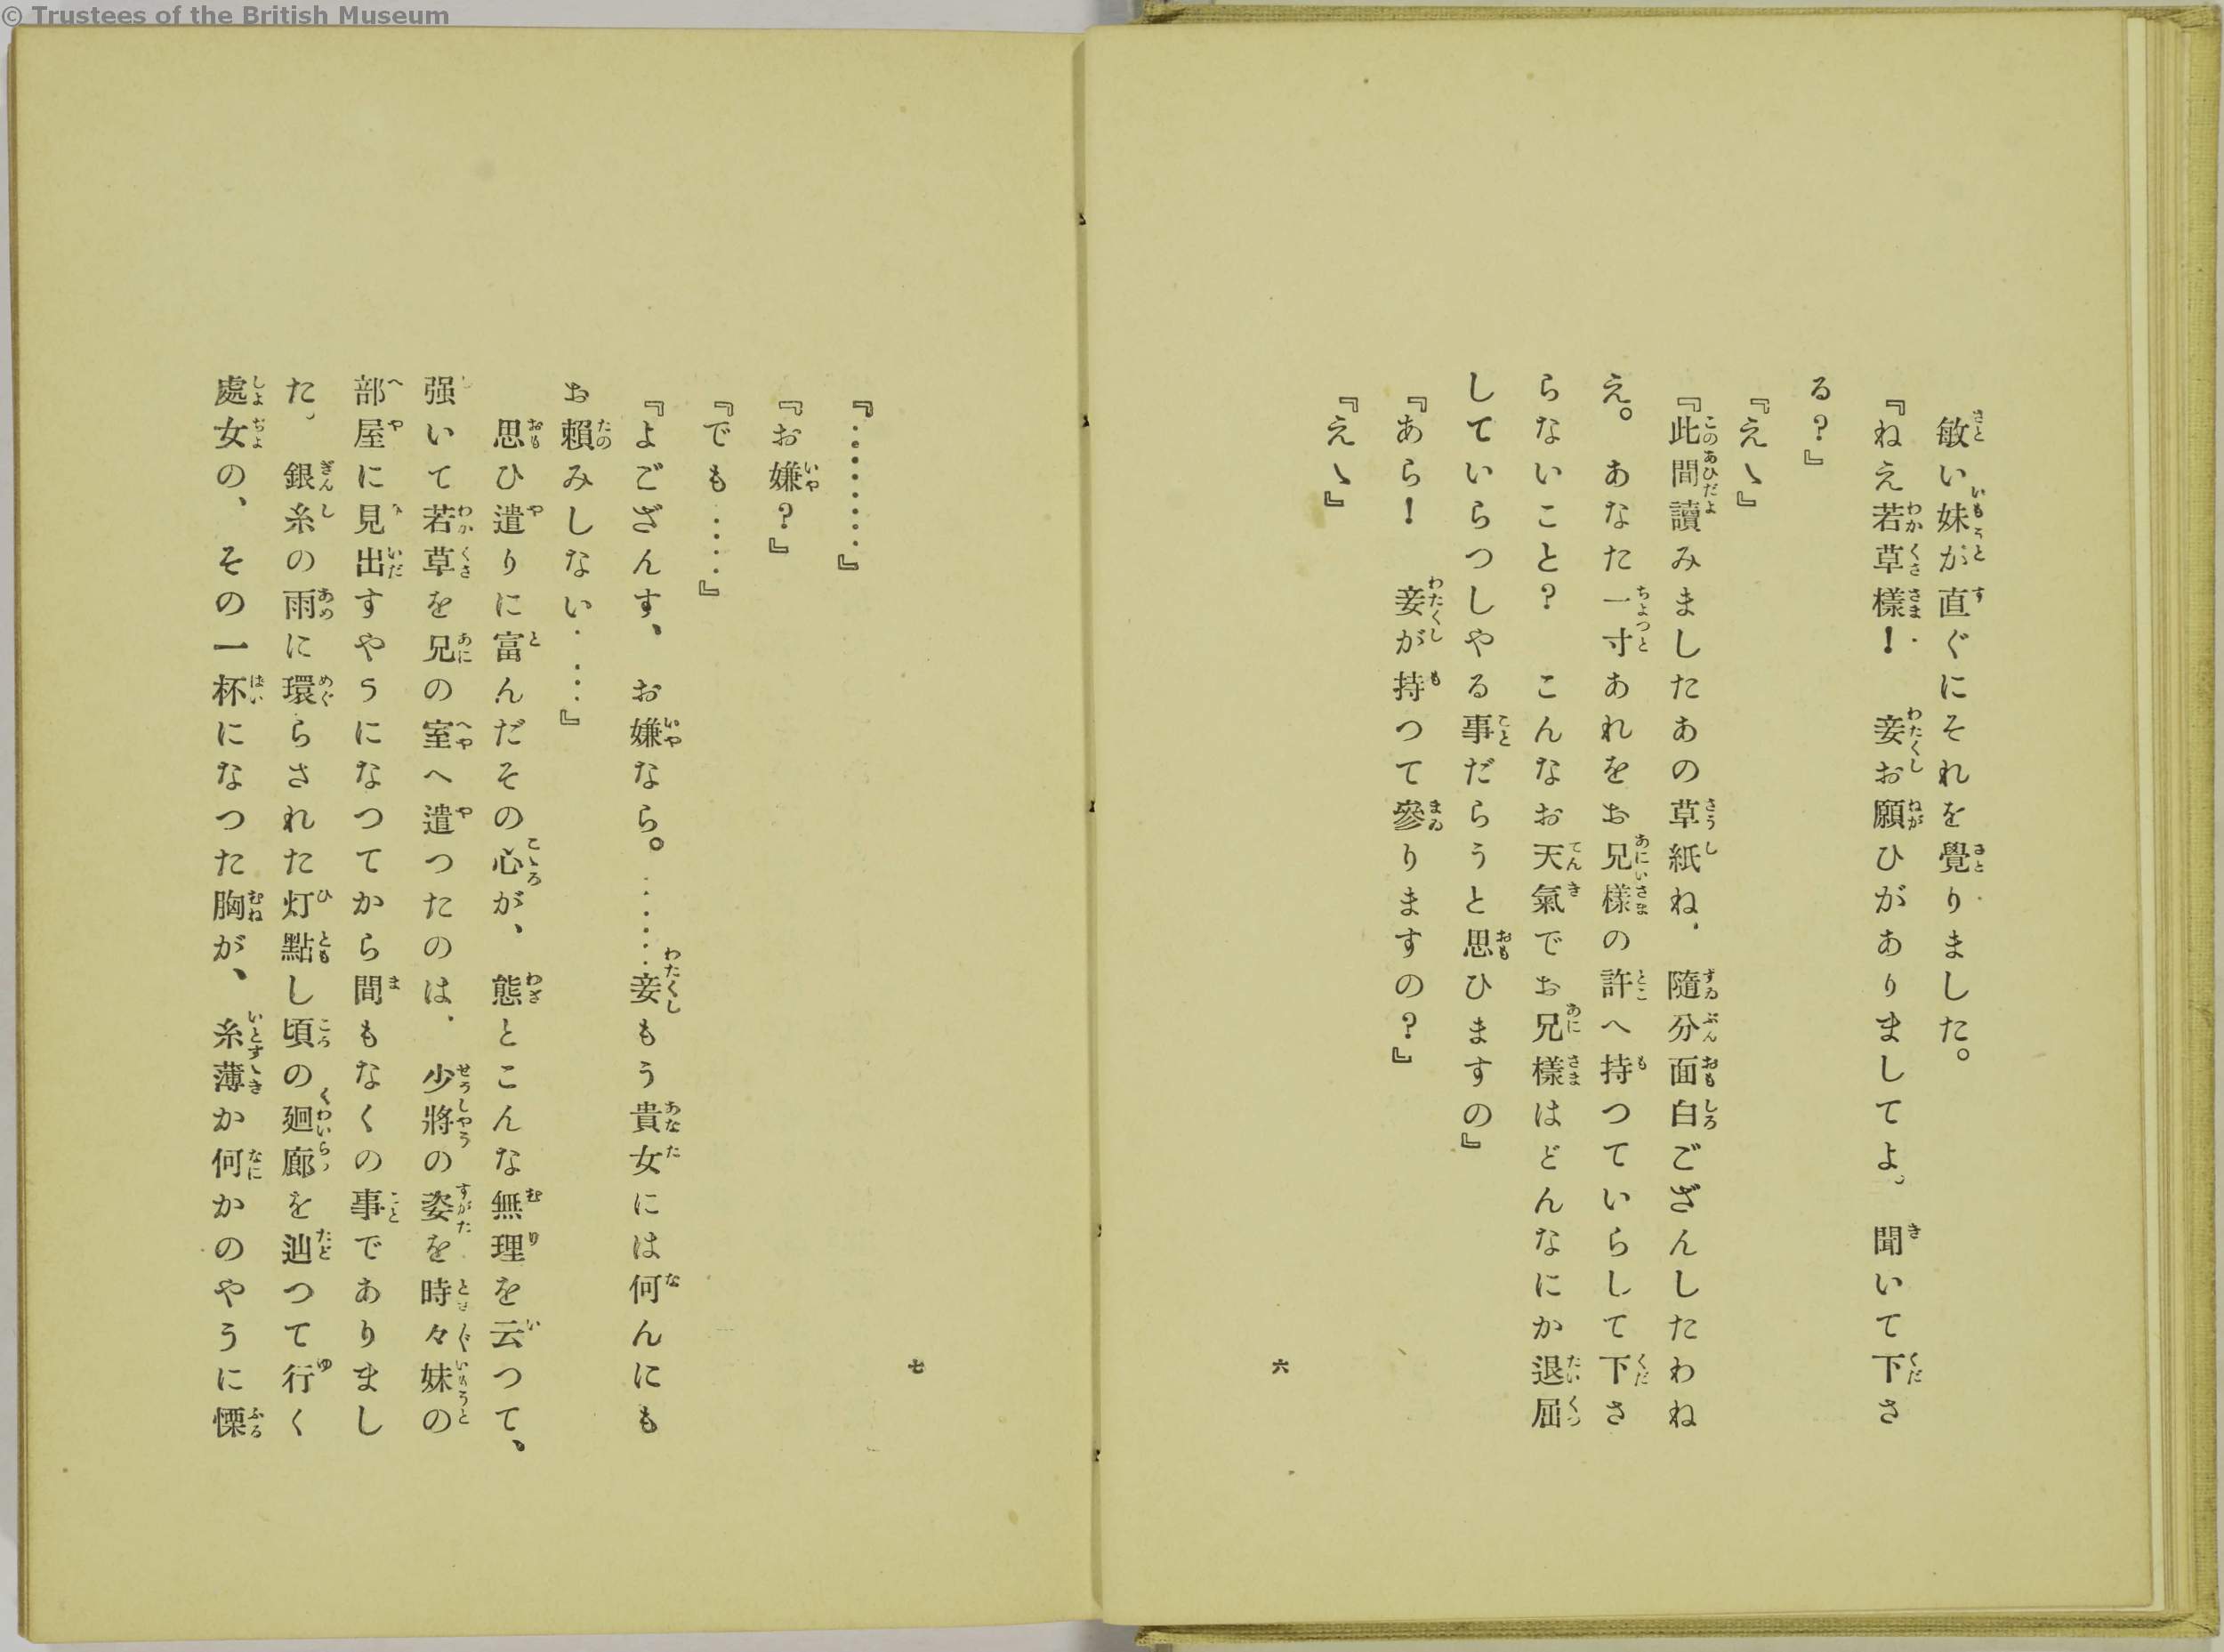 © Trustees of the British Museum
敏い妹が直ぐにそれを覺りました。
『ねえ若草樣！　妾お願ひがありましてよ。聞いて下さ
る？』
『えゝ』
『此間讀みましたあの草紙ね、隨分面白ござんしたわね
え。あなた一寸あれをお兄樣の許へ持つていらして下さ
らないこと？　こんなお天氣でお兄樣はどんなにか退屈
していらつしやる事だらうと思ひますの』
『あら！　妾が持つて參りますの？』
『えゝ』
六
『………』
『お嫌？』
『でも……』
『よござんす、お嫌なら。……妾もう貴女には何んにも
お賴みしない……』
思ひ遣りに富んだその心が、態とこんな無理を云つて、
强いて若草を兄の室へ遣つたのは、少將の姿を時々妹の
部屋に見出すやうになつてから間もなくの事でありまし
た。銀糸の雨に環らされた灯點し頃の廻廊を辿つて行く
處女の、その一杯になつた胸が、糸薄か何かのやうに慄
七